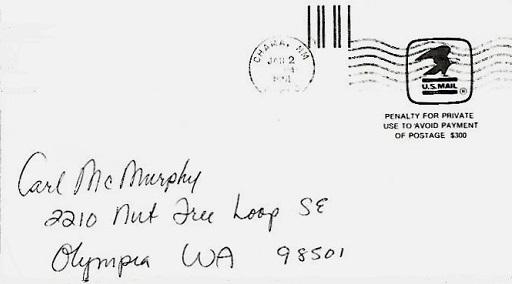 CHAMA, NM
JAN 2
U.S. MAIL ®
PENALTY FOR PRIVATE
USE TO AVOID PAYMENT
OF POSTAGE $300
Carl McMurphy
2210 Nut Tree Loop SE
Olympia WA 98501